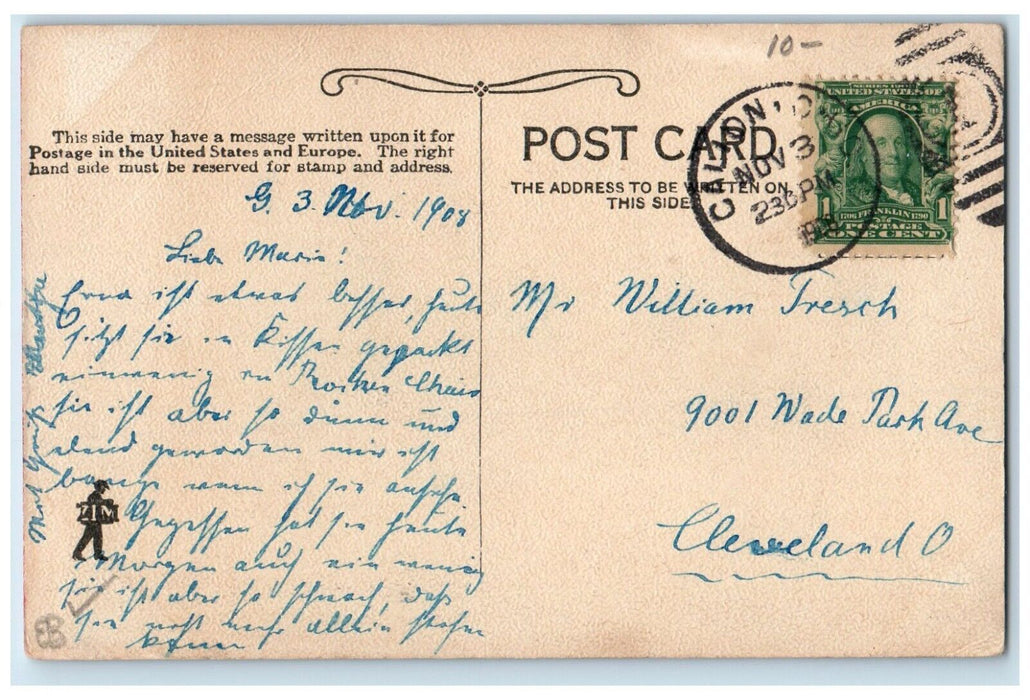 10-
This side may have a message written upon it for
Postage in the United States and Europe. The right
hand side must be reserved for stamp and address.
POST CARD
THE ADDRESS TO BE WRITTEN ON
THIS SIDE
CANTON, O.
NOV 3
230 PM
1908
SERIES 1902
UNITED STATES OF
AMERICA
1 1706 FRANKLIN 1790 1
POSTAGE
ONE CENT
G. 3. Nov. 1908
Liebe Marie!
Erna ist etwas besser, heute
sitzt sie in Kissen gepackt
ein wenig in Rocken Chair
sie ist aber so dünn und
elend geworden mir ist
bange wenn ich sie ansehe
Gegessen hat sie heute
Morgen auch ein wenig
sie ist aber so schwach, daß
sie nicht mehr allein stehen
kann
Mit Gruß
ZIM
Mr William Tresch
9001 Wade Park Ave
Cleveland O